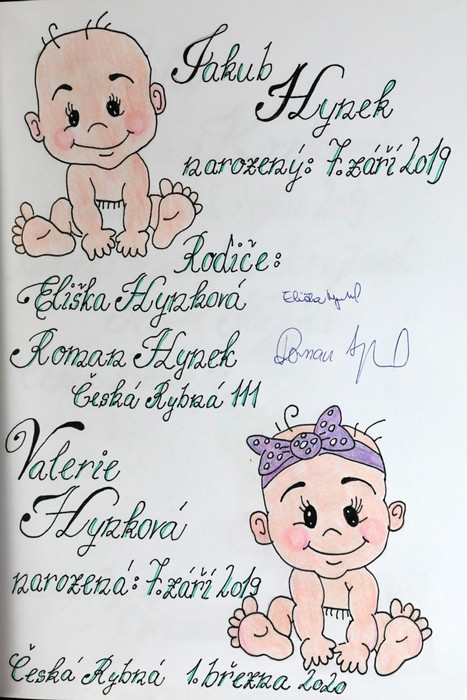 Jakub
Hynek
narozený: 7. září 2019
Rodiče:
Eliška Hynková
Roman Hynek
Česká Rybná 111
Valerie
Hynková
narozená: 7. září 2019
Česká Rybná 1. března 2020
Eliška
Roman